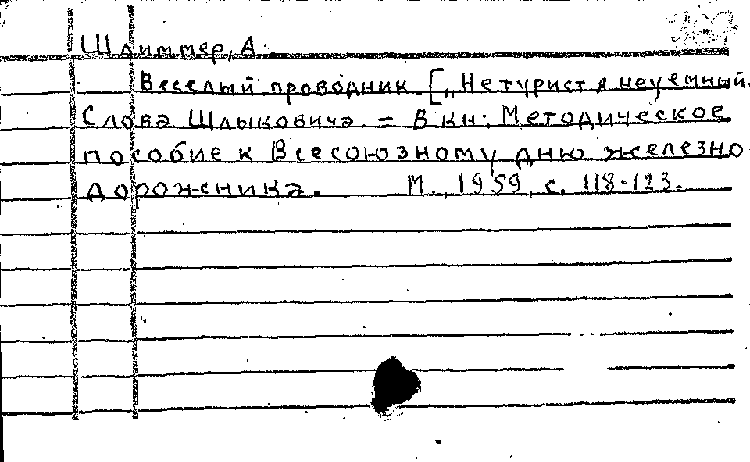 Шлиммер, А.
Веселый проводник [„Не турист я неуемный.
Слова Шлыковича. = В кн: Методическое
пособие к Всесоюзному дню железно
дорожника. М., 1959, с. 118-123.